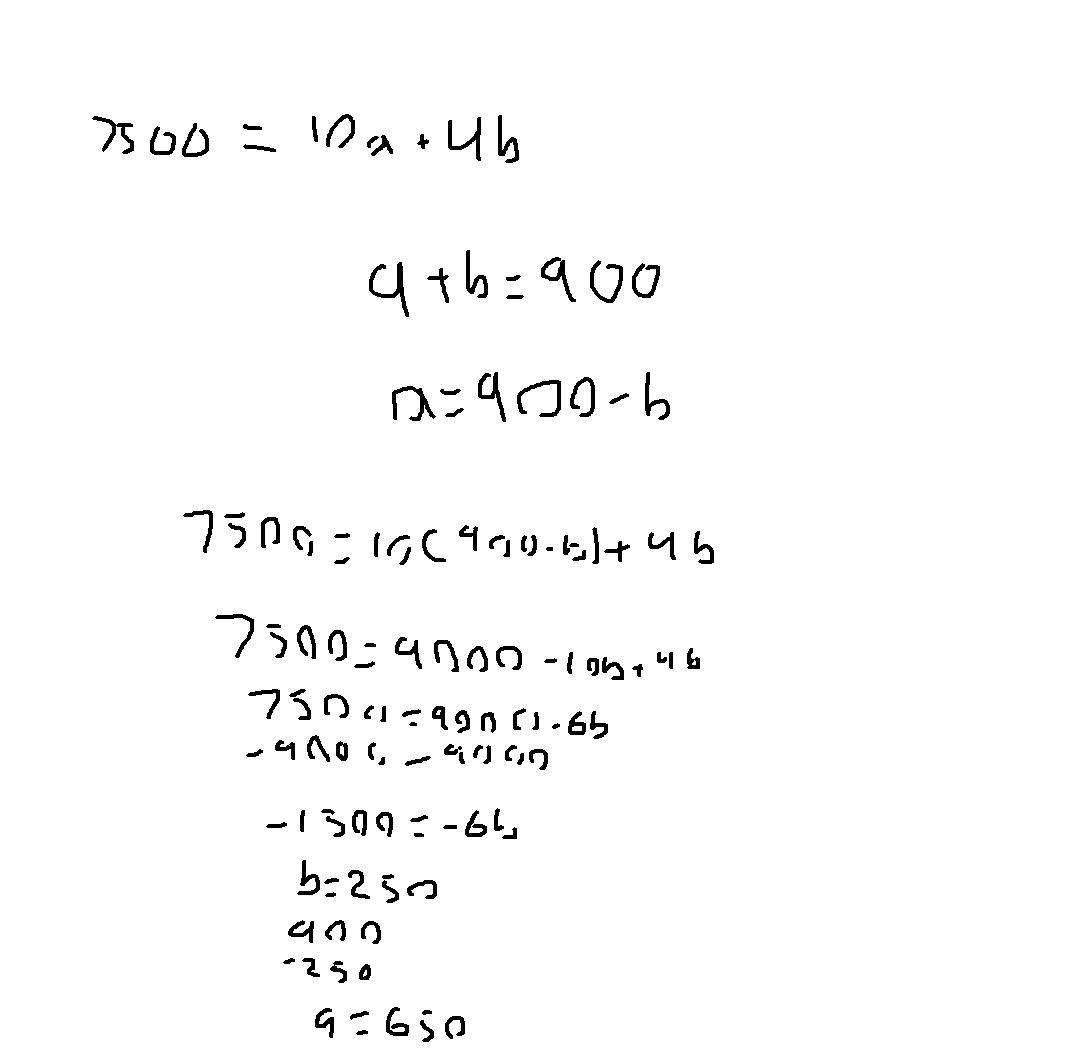 7500 = 10a + 4b
a + b = 900
a = 900 - b
7500 = 10(900 - b) + 4b
7500 = 9000 - 10b + 4b
7500 = 9000 - 6b
-9000 -9000
-1500 = -6b
b = 250
900
-250
a = 650